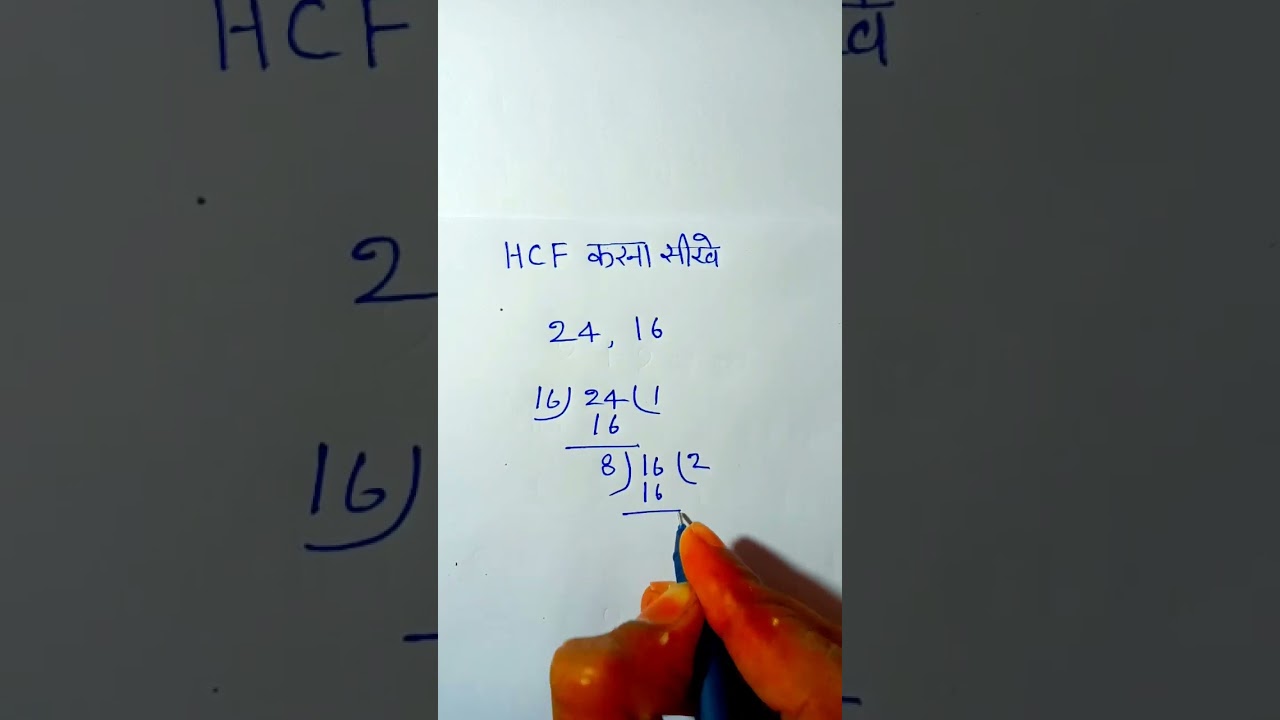 HCF करना सीखे
24, 16
16) 24 ( 1
16
8) 16 ( 2
16